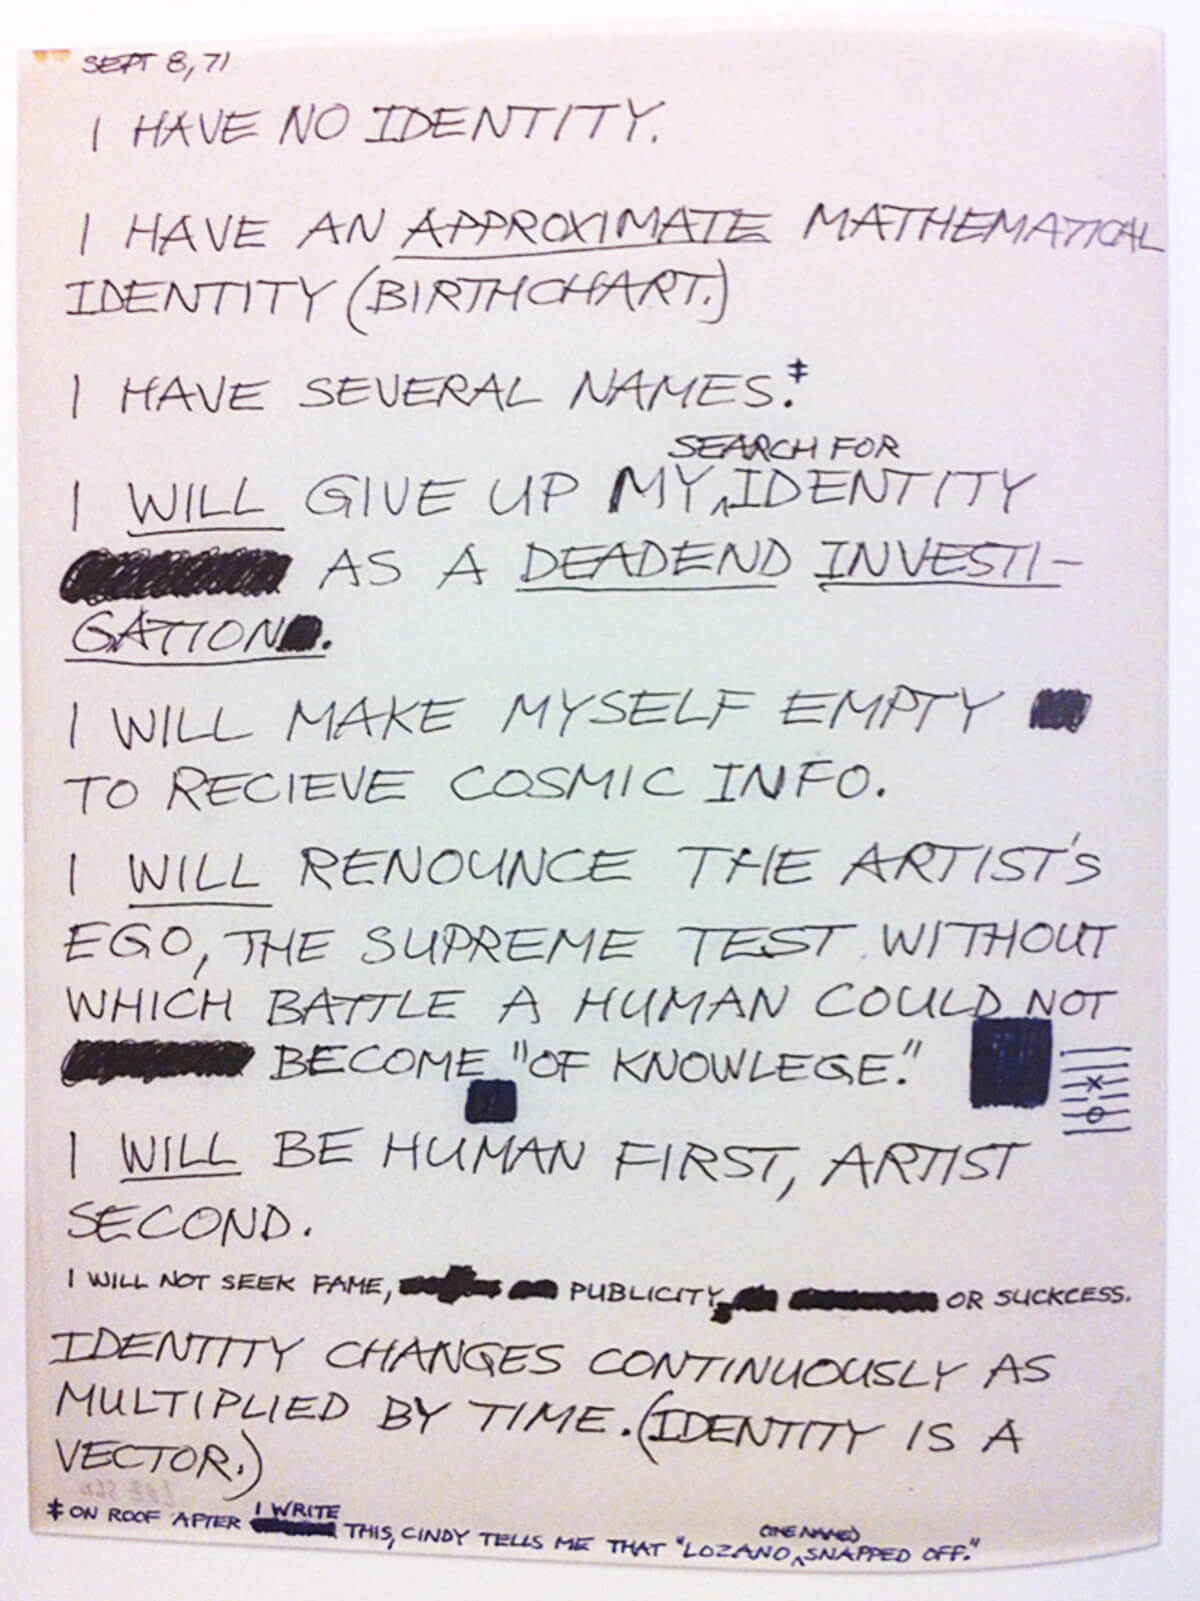 SEPT 8, 71
I HAVE NO IDENTITY.
I HAVE AN APPROXIMATE MATHEMATICAL
IDENTITY (BIRTHCHART.)
I HAVE SEVERAL NAMES.‡
SEARCH FOR
I WILL GIVE UP MY ^ IDENTITY
AS A DEADEND INVESTI-
GATION.
I WILL MAKE MYSELF EMPTY
TO RECIEVE COSMIC INFO.
I WILL RENOUNCE THE ARTIST'S
EGO, THE SUPREME TEST WITHOUT
WHICH BATTLE A HUMAN COULD NOT
BECOME "OF KNOWLEGE."
I WILL BE HUMAN FIRST, ARTIST
SECOND.
I WILL NOT SEEK FAME, PUBLICITY, OR SUCKCESS.
IDENTITY CHANGES CONTINUOUSLY AS
MULTIPLIED BY TIME. (IDENTITY IS A
VECTOR.)
I WRITE
‡ ON ROOF AFTER THIS, CINDY TELLS ME THAT "LOZANO ^ SNAPPED OFF."